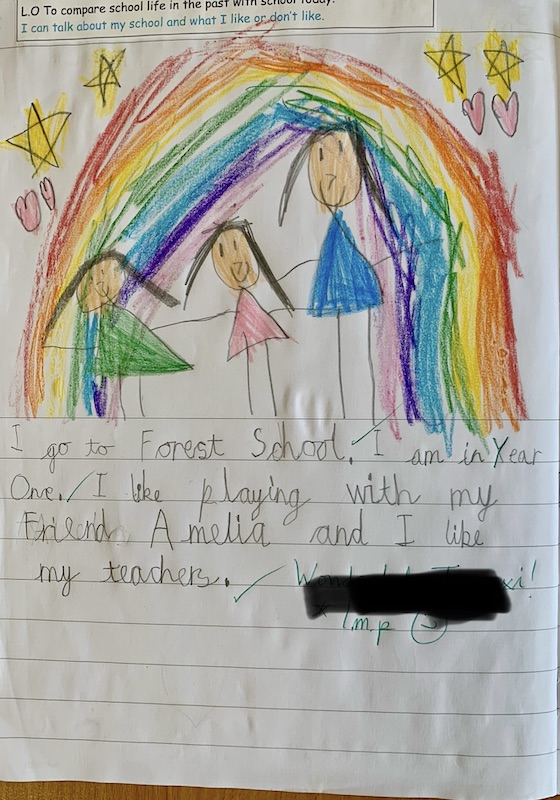 L.O To compare school life in the past with school today.
I can talk about my school and what I like or don't like.
I go to Forest School. I am in Year
One. I like playing with my
Friend Amelia and I like
my teachers.
1mp